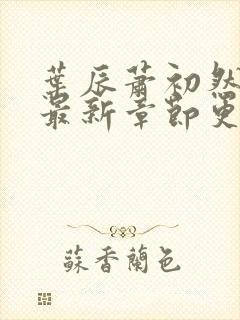 葉辰蕭初然
最新章節更
蘇香蘭色